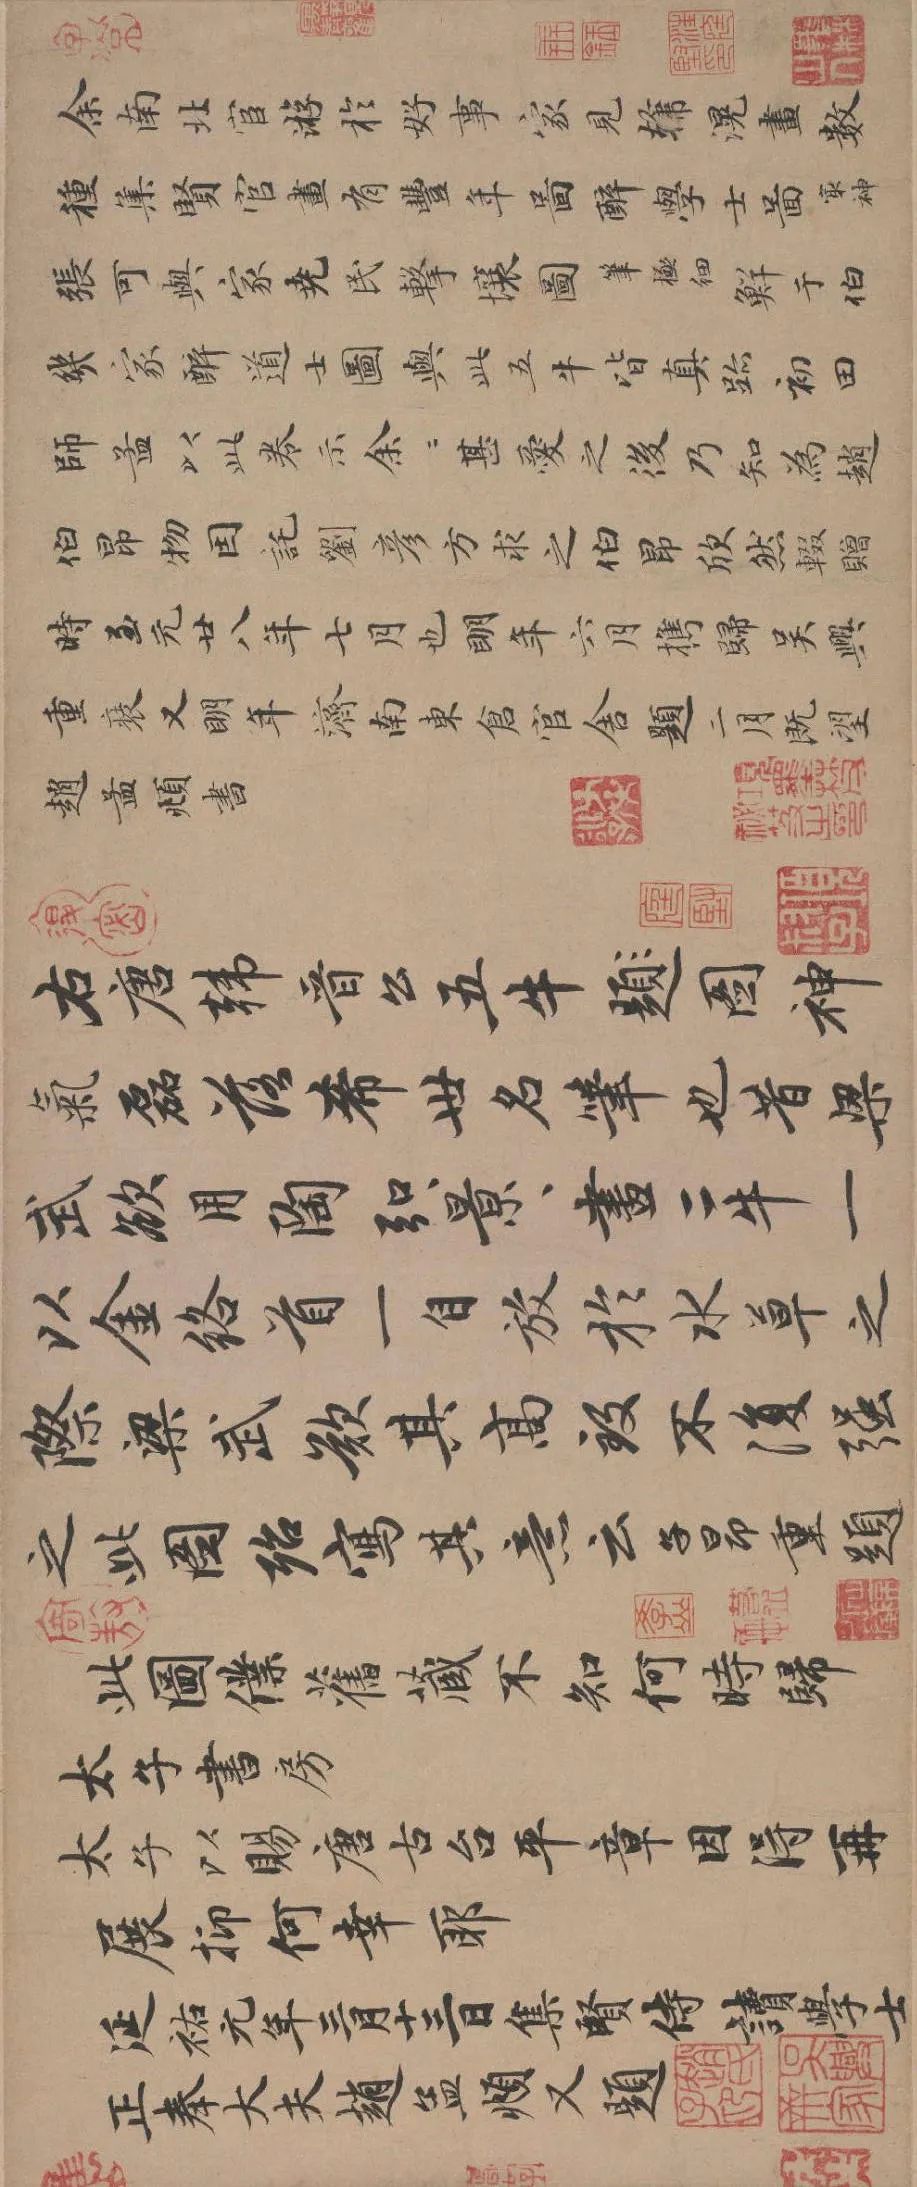 余南北官游於好事家見韓滉畫數
種集賢官畫有豐年圖醉學士圖最神
張可與家堯民擊壤圖筆極細鮮于伯
幾家醉道士圖與此五牛皆真跡初田
師孟以此卷示余〻甚愛之後乃知為趙
伯昂物因託劉彥方求之伯昂欣然輟贈
時至元廿八年七月也明年六月攜歸吳興
重裝又明年濟南東倉官舍題二月既望
趙孟頫書
右唐韓晉公五牛題圖神
氣磊落希世名筆也昔梁
武欲用陶弘景〻畫二牛一
以金絡首一自放於水草之
際梁武歎其高致不復強
之此圖殆寫其意云子昂重題
此圖僕舊藏不知何時歸
太子書房
太子以賜唐古台平章因得再
展抑何幸耶
延祐元年三月十三日集賢侍讀學士
正奉大夫趙孟頫又題